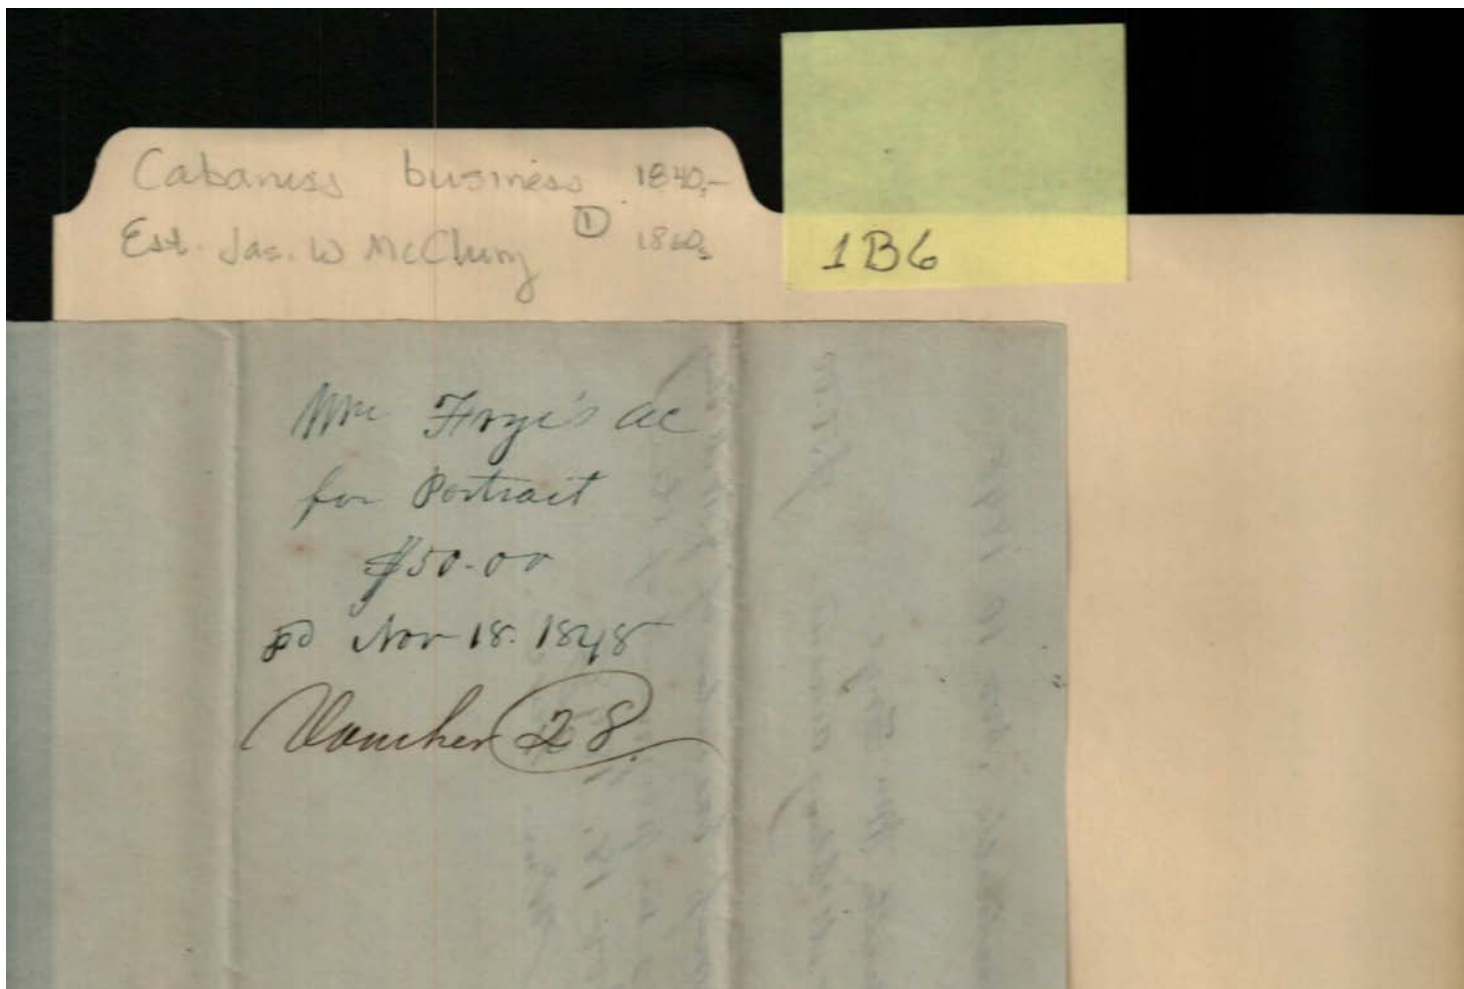 Cabaness business 1840s-
Est. Jas. W McClung ① 1860s
1B6
Wm Frye's ac
for Portrait
$50.00
pd Nov 18. 1848
Voucher 28